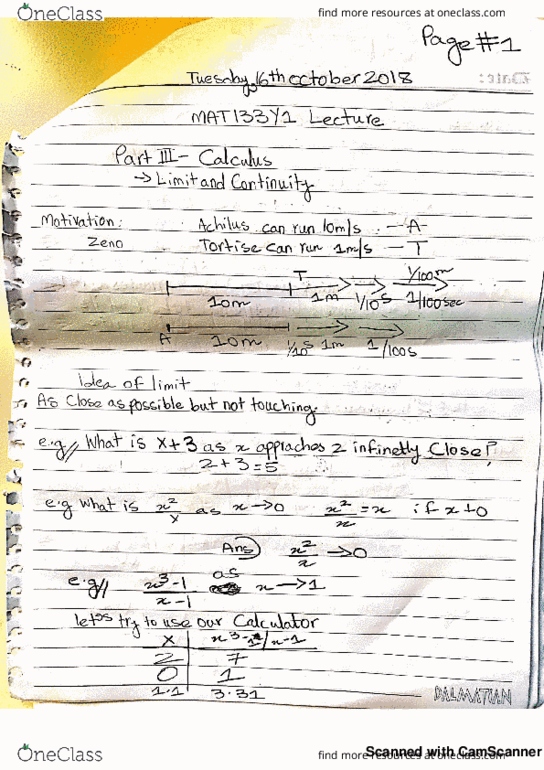 OneClass find more resources at oneclass.com
Page #1
Tuesday, 16th october 2018
MAT133Y1 Lecture
Part III - Calculus
→ Limit and Continuity
Motivation: Achilus can run 10m/s - A
Zeno Tortise can run 1m/s - T
T 1/100m
10m 1m 1/10s 1/100sec
A 10m 1/10s 1m 1/100s
idea of limit
As Close as possible but not touching.
e.g// What is x+3 as x appraches 2 infinetly Close?
2+3=5
e.g what is x²/x as x→0 x²/x = x if x≠0
Ans) x²/x →0
e.g// x³-1/x-1 as x→1
let's try to use our Calculator
x | x³-1/x-1
2 | 7
0 | 1
1.1 | 3.31
DALMATIAN
OneClass find more resources at oneclass.com
Scanned with CamScanner